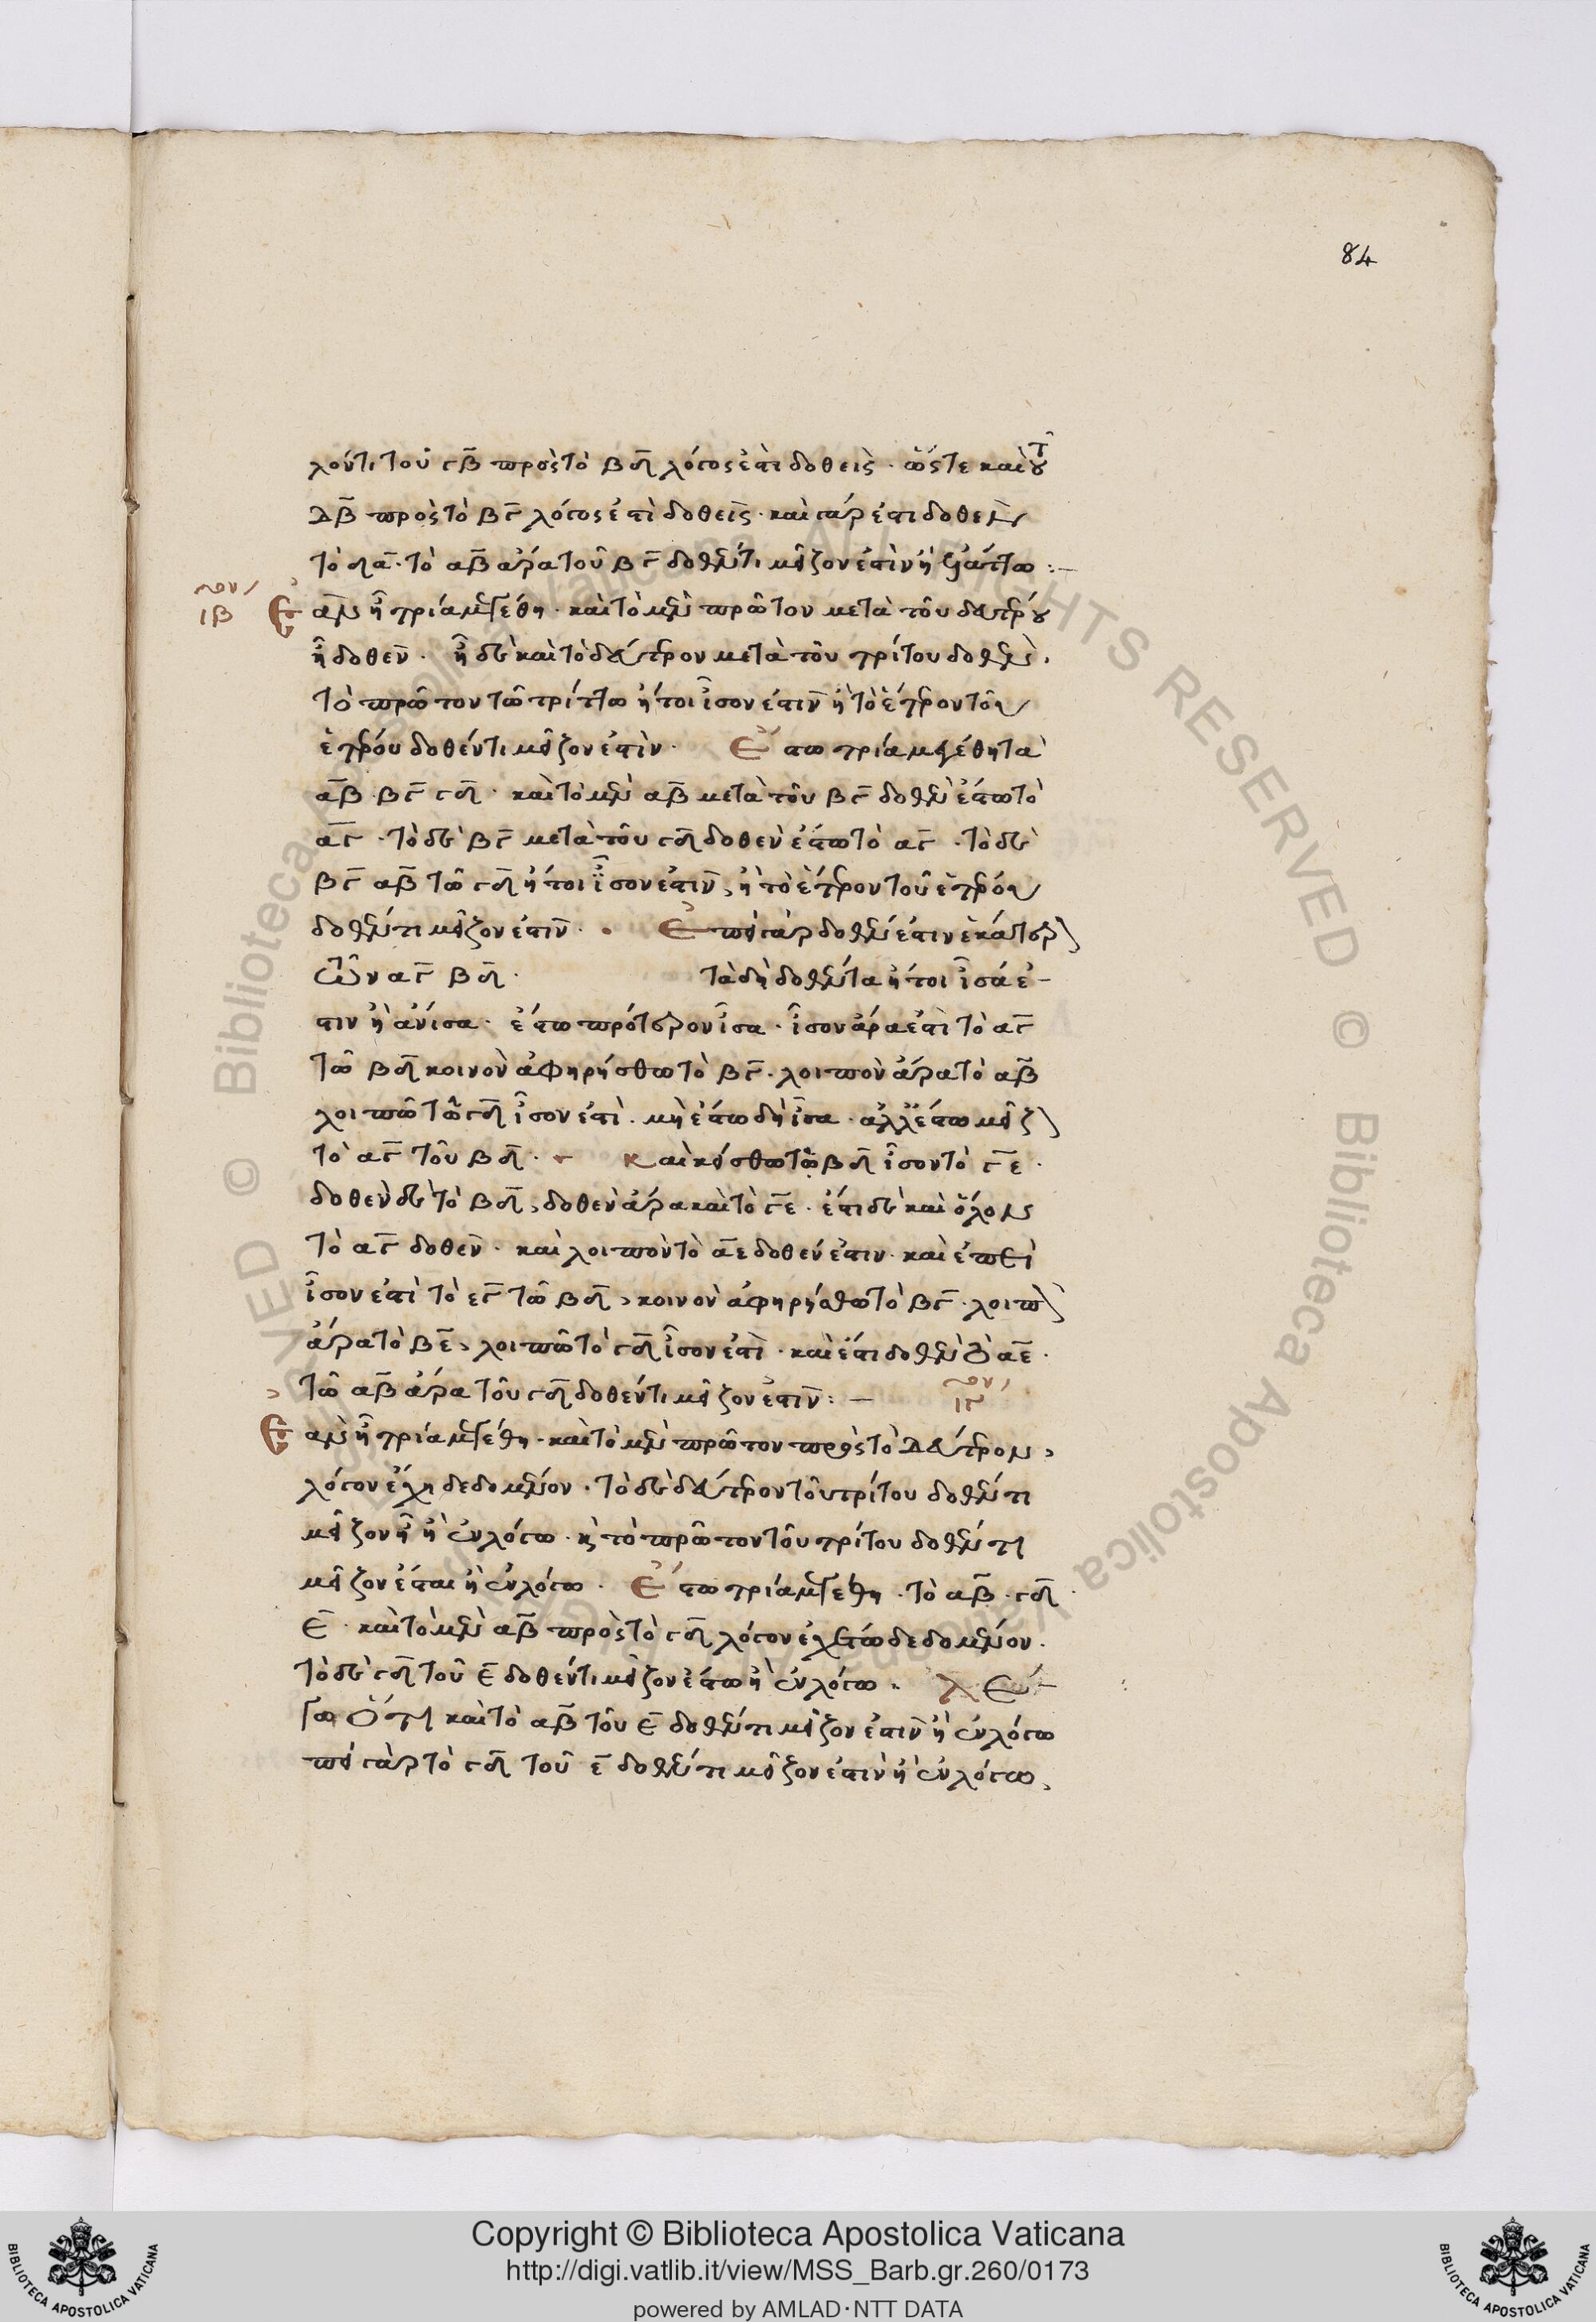 84
λοντι τοῦ γβ πρὸς τὸ βδ λόγος ἐστὶ δοθείς· ὥστε καὶ τοῦ
αβ πρὸς τὸ βγ λόγος ἐστὶ δοθείς· καὶ γάρ ἐστι δοθὲν
τὸ δα· τὸ αβ ἄρα τοῦ βγ δοθέντι μεῖζόν ἐστιν ἢ
ιβ Ἐὰν ᾖ τρία μεγέθη· καὶ τὸ μὲν πρῶτον μετὰ τοῦ δευτέρου
ᾖ δοθέν· ᾖ δὲ καὶ τὸ δεύτερον μετὰ τοῦ τρίτου δοθέν·
τὸ πρῶτον τῷ τρίτῳ ἤτοι ἴσον ἐστὶν ἢ τὸ ἕτερον τοῦ
ἑτέρου δοθέντι μεῖζόν ἐστιν· Ἔστω τρία μεγέθη τὰ
αβ βγ γδ· καὶ τὸ μὲν αβ μετὰ τοῦ βγ δοθὲν ἔστω τὸ
αγ· τὸ δὲ βγ μετὰ τοῦ γδ δοθὲν ἔστω τὸ αγ· τὸ δὲ
βγ αβ τῷ γδ ἤτοι ἴσον ἐστὶν, ἢ τὸ ἕτερον τοῦ ἑτέρου
δοθέντι μεῖζόν ἐστιν· Ἐπεὶ γὰρ δοθέν ἐστιν ἑκάτερον
τῶν αγ βδ· τὰ δὴ δοθέντα ἤτοι ἴσα ἐ-
στιν ἢ ἄνισα· ἔστω πρότερον ἴσα· ἴσον ἄρα ἐστὶ τὸ αγ
τῷ βδ κοινὸν ἀφῃρήσθω τὸ βγ· λοιπὸν ἄρα τὸ αβ
λοιπῷ τῷ γδ ἴσον ἐστί· μὴ ἔστω δὴ ἴσα· ἀλλ' ἔστω μεῖζ
τὸ αγ τοῦ βδ· καὶ κείσθω τῷ βδ ἴσον τὸ γε·
δοθὲν δὲ τὸ βδ, δοθὲν ἄρα καὶ τὸ γε· ἔστι δὲ καὶ ὅλον
τὸ αγ δοθέν· καὶ λοιπὸν τὸ αε δοθέν ἐστιν· καὶ ἐπεὶ
ἴσον ἐστὶ τὸ εγ τῷ βδ, κοινὸν ἀφῃρήσθω τὸ βγ· λοιπὸν
ἄρα τὸ βε, λοιπῷ τὸ γδ ἴσον ἐστί· καὶ ἔστι δοθὲν τὸ αε·
τῷ αβ ἄρα τοῦ γδ δοθέντι μεῖζόν ἐστιν:— ιγ
Ἐὰν ᾖ τρία μεγέθη· καὶ τὸ μὲν πρῶτον πρὸς τὸ δεύτερον,
λόγον ἔχῃ δεδομένον· τὸ δὲ δεύτερον τοῦ τρίτου δοθέντι
μεῖζον ᾖ ἢ ἐν λόγῳ· καὶ τὸ πρῶτον τοῦ τρίτου δοθέντι
μεῖζον ἔσται ἢ ἐν λόγῳ· Ἔστω τρία μεγέθη· τὸ αβ· γδ
ε· καὶ τὸ μὲν αβ πρὸς τὸ γδ λόγον ἐχέτω δεδομένον·
τὸ δὲ γδ τοῦ ε δοθέντι μεῖζον ἔστω ἢ ἐν λόγῳ· λέ-
γω ὅτι καὶ τὸ αβ τοῦ ε δοθέντι μεῖζόν ἐστιν ἢ ἐν λόγῳ
πεὶ γὰρ τὸ γδ τοῦ ε δοθέντι μεῖζόν ἐστιν ἢ ἐν λόγῳ,
Copyright © Biblioteca Apostolica Vaticana
http://digi.vatlib.it/view/MSS_Barb.gr.260/0173
powered by AMLAD·NTT DATA